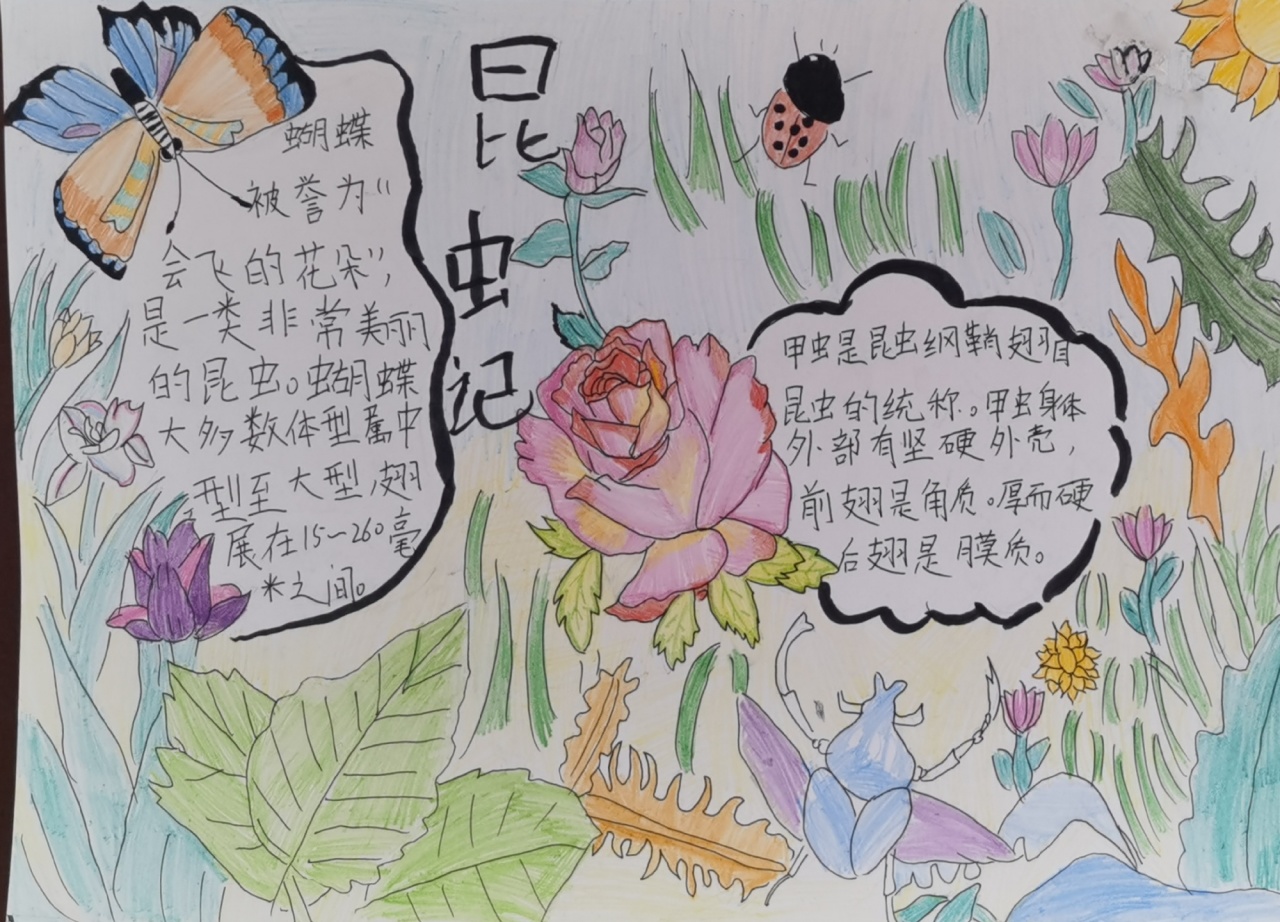 昆虫记
蝴蝶
被誉为“
会飞的花朵”，
是一类非常美丽
的昆虫。蝴蝶
大多数体型属中
型至大型，翅
展在15~260毫
米之间。
甲虫是昆虫纲鞘翅目
昆虫的统称。甲虫身体
外部有坚硬外壳，
前翅是角质。厚而硬
后翅是膜质。